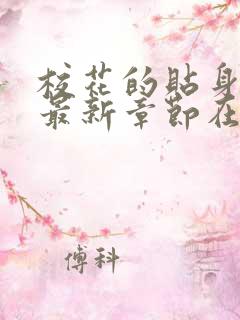 校花的貼身
最新章節在
傅科